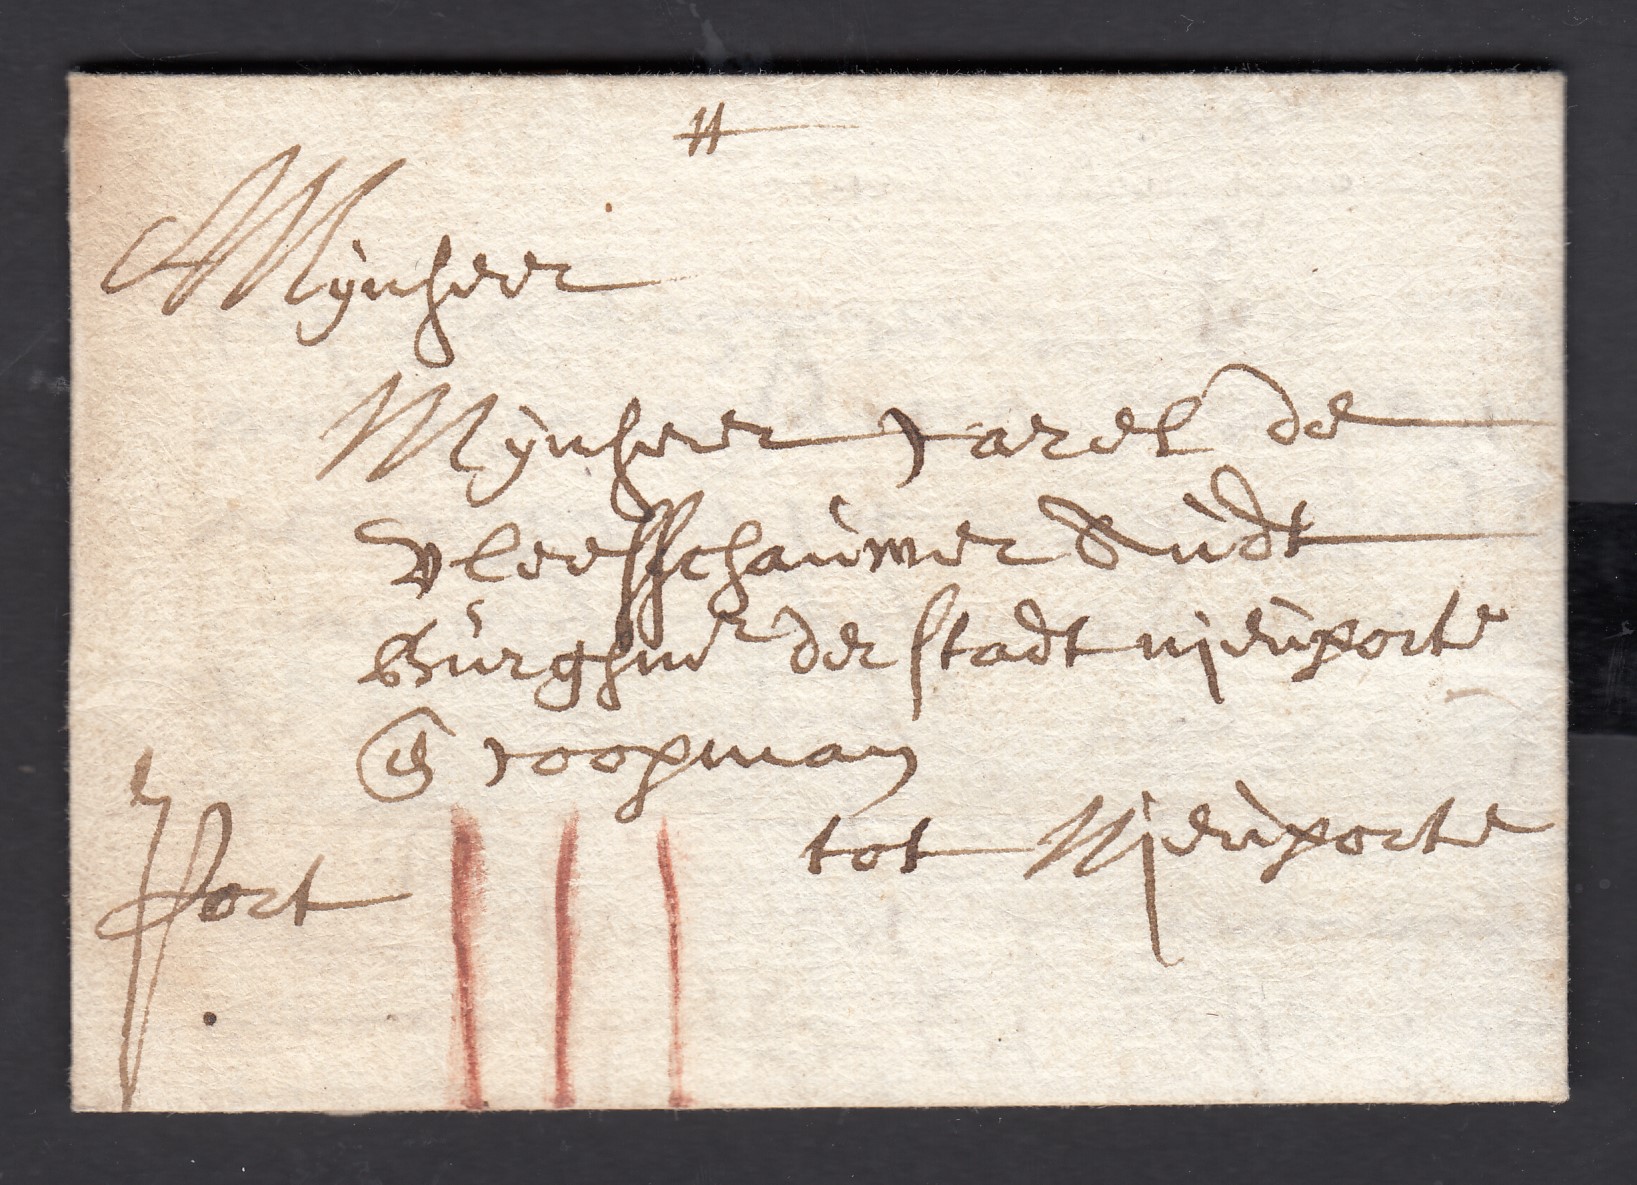 Mynheer
Mynheer Carel de
vleesschauwer oudt
Burghmr der stadt nieuporte
en coopman
tot Nieuporte
port
III